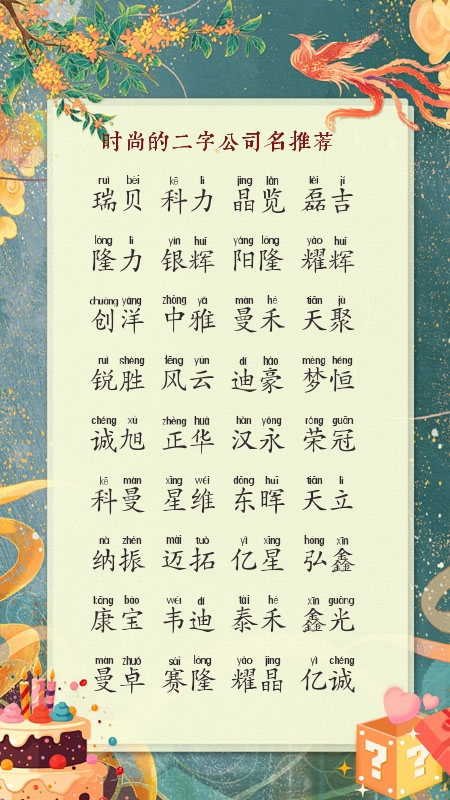 时尚的二字公司名推荐
ruì bèi kē lì jīng lǎn lěi jí
瑞贝 科力 晶览 磊吉
lóng lì yín huī yáng lóng yào huī
隆力 银辉 阳隆 耀辉
chuàng yáng zhōng yǎ màn hé tiān jù
创洋 中雅 曼禾 天聚
ruì shèng fēng yún dí háo mèng héng
锐胜 风云 迪豪 梦恒
chéng xù zhèng huá hàn yǒng róng guān
诚旭 正华 汉永 荣冠
kē màn xīng wéi dōng huī tiān lì
科曼 星维 东晖 天立
nà zhèn mài tuò yì xīng hóng xīn
纳振 迈拓 亿星 弘鑫
kāng bǎo wéi dí tài hé xīn guāng
康宝 韦迪 泰禾 鑫光
màn zhuó sài lóng yào jīng yì chéng
曼卓 赛隆 耀晶 亿诚